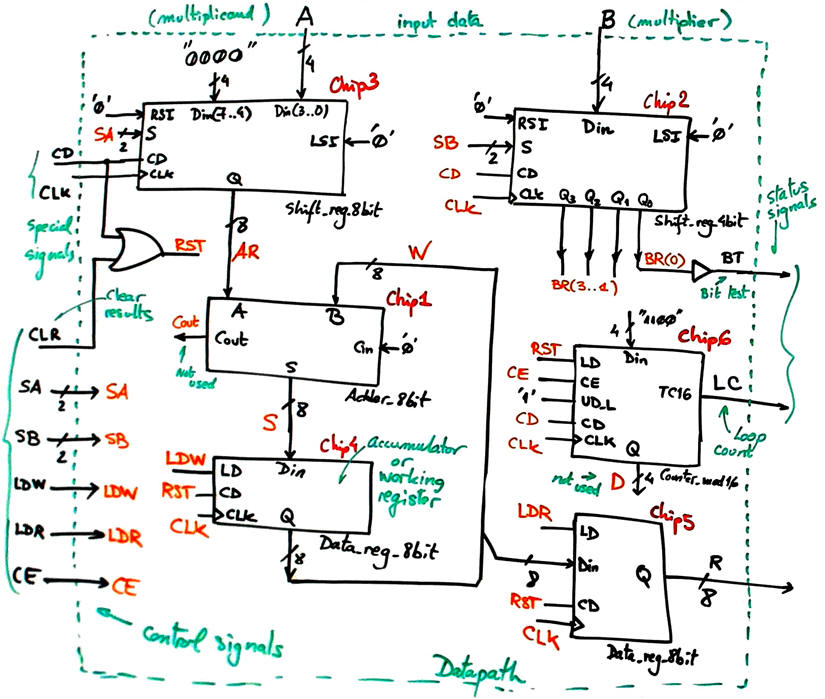 (multiplicand) A input data B (multiplier)
"0000" 4 4 4
Chip3 Chip2
'0' RSI Din(7..4) Din(3..0)
SA 2 S LSI '0'
CD CD
CLK CLK
Q
Shift_reg_8bit
'0' RSI Din LSI '0'
SB 2 S
CD CD
CLK CLK Q3 Q2 Q1 Q0
Shift_reg_4bit
special signals
status signals
RST
8 AR
8 W
BR(3..1) BR(0) BT
Bit test
CLR clear results
Chip1
A B
Cout Cout Cin '0'
Not used
S
Adder_8bit
S 8
"1100" 4
Chip6
RST LD Din
CE CE TC16 LC
'1' UD_L
CD CD
CLK CLK
Q
Loop count
not used D 4 Counter_mod16
SA 2 SA
SB 2 SB
LDW LDW
LDR LDR
CE CE
Chip4
accumulator or working register
LDW LD Din
RST CD
CLK CLK Q
Data_reg_8bit
8
Chip5
LDR LD
8 Din Q R 8
RST CD
CLK
Data_reg_8bit
control signals
Datapath